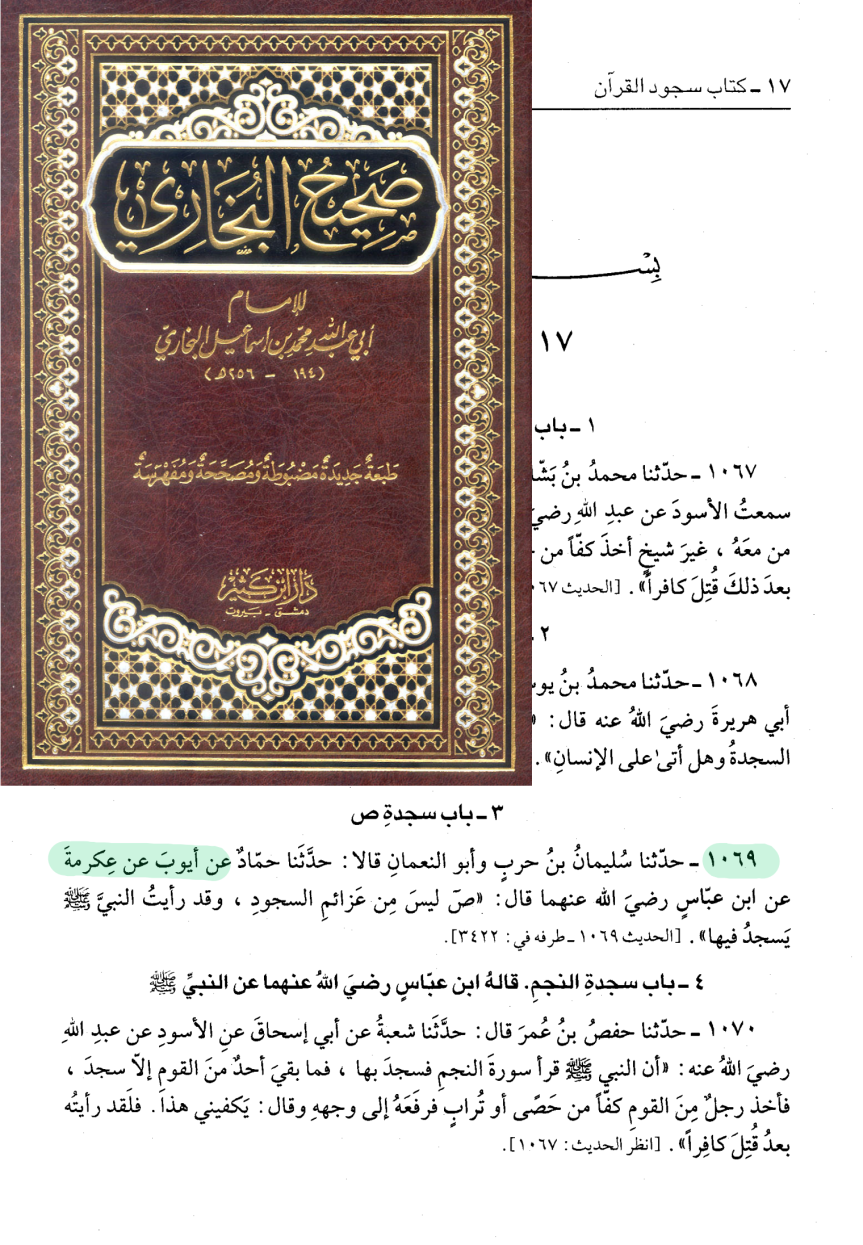 صَحِيحُ البُخَارِي
للإمام
أبي عبد الله محمد بن إسماعيل البخاري
(١٩٤ - ٢٥٦هـ)
طَبعَةٌ جَدِيدَةٌ مَضبُوطَةٌ وَمُصَحَّحَةٌ وَمُفَهْرَسَةٌ
دار ابن كثير
دمشق - بيروت
١٧ - كتاب سجود القرآن
بِسْـ
١٧
١ - باب
١٠٦٧ - حدّثنا محمدُ بنُ بَشّا
سمعتُ الأسودَ عن عبدِ اللهِ رضيَ
من معَهُ ، غيرَ شيخٍ أخذَ كفّاً من
بعدَ ذلكَ قُتِلَ كافراً» . [الحديث ٠٦٧
٢ -
١٠٦٨ - حدّثنا محمدُ بنُ يوس
أبي هريرةَ رضيَ اللهُ عنه قال : «
السجدةُ وهل أتىٰ على الإنسانِ» .
٣ - باب سجدةِ ص
١٠٦٩ - حدّثنا سُليمانُ بنُ حربٍ وأبو النعمانِ قالا : حدَّثَنا حمّادٌ عن أيوبَ عن عِكرمةَ
عن ابن عبّاسٍ رضيَ الله عنهما قال : «صَ ليسَ مِن عَزائمِ السجودِ ، وقد رأيتُ النبيَّ ﷺ
يَسجدُ فيها» . [الحديث ١٠٦٩ - طرفه في : ٣٤٢٢].
٤ - باب سجدةِ النجمِ. قالهُ ابن عبّاسٍ رضيَ اللهُ عنهما عن النبيِّ ﷺ
١٠٧٠ - حدّثنا حفصُ بنُ عُمرَ قال : حدَّثَنا شعبةُ عن أبي إسحاقَ عنِ الأسودِ عن عبدِ اللهِ
رضيَ اللهُ عنه : «أن النبي ﷺ قرأ سورةَ النجمِ فسجدَ بها ، فما بقيَ أحدٌ منَ القومِ إلاّ سجدَ ،
فأخذ رجلٌ مِنَ القومِ كفّاً من حَصًى أو تُرابٍ فرفَعَهُ إلى وجههِ وقال : يَكفيني هذا . فلَقد رأيتُه
بعدُ قُتِلَ كافِراً» . [انظر الحديث : ١٠٦٧].